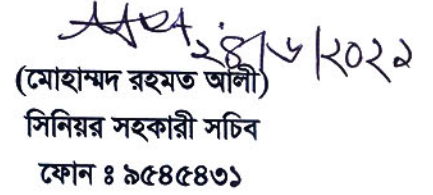 ২৪/৬/২০২১
(মোহাম্মদ রহমত আলী)
সিনিয়র সহকারী সচিব
ফোন ঃ ৯৫৪৫৪৩১